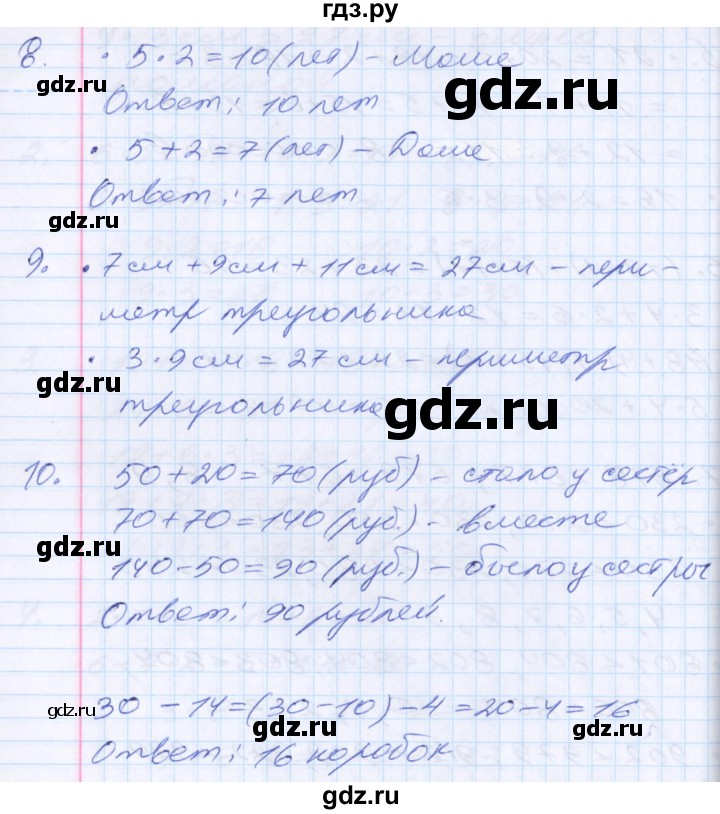 гдз.ру
8. • 5 · 2 = 10 (лет) – Маше
gdz.ru
Ответ: 10 лет
gdz.ru
• 5 + 2 = 7 (лет) – Даше
Ответ: 7 лет
gdz.ru
gdz.ru
9. • 7 см + 9 см + 11 см = 27 см – пери-
метр треугольника
• 3 · 9 см = 27 см – периметр
gdz.ru
треугольника
gdz.ru
10. 50 + 20 = 70 (руб) – стало у сестёр
70 + 70 = 140 (руб.) – вместе
gdz.ru
140 – 50 = 90 (руб.) – было у сестры
Ответ: 90 рублей.
gdz.ru
30 – 14 = (30 – 10) – 4 = 20 – 4 = 16
gdz.ru
gdz.ru
Ответ: 16 коробок
gdz.ru